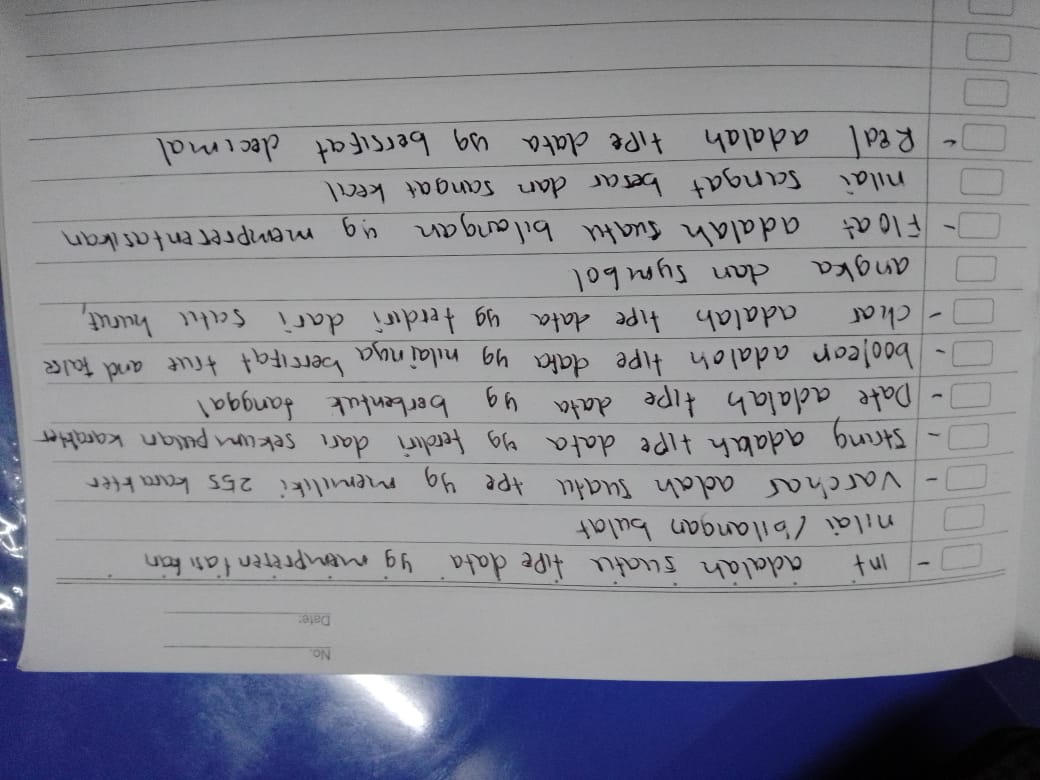 No.
Date:
- int adalah suatu tipe data yg mempresentasikan
nilai /bilangan bulat
- Varchar adah suatu tpe yg memiliki 255 karakter
- String adalah tipe data yg terdiri dari sekumpulan karakter
- Date adalah tipe data yg berbentuk tanggal
- boolean adalah tipe data yg nilainya bersifat true and false
- char adalah tipe data yg terdiri dari satu huruf,
angka dan symbol
- Float adalah suatu bilangan yg mempresentasikan
nilai sangat besar dan sangat kecil
- Real adalah tipe data yg bersifat decimal